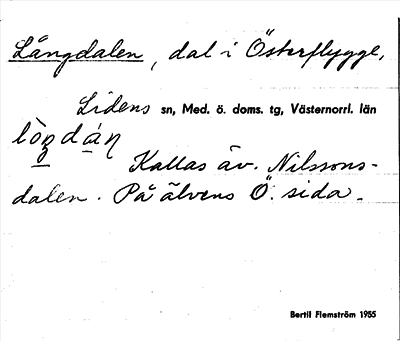 Långdalen, dal i Österflygge,
Lidens sn, Med. ö. doms. tg, Västernorrl. län
Kallas äv. Nilssons-
dalen. På älvens Ö. sida.
Bertil Flemström 1955